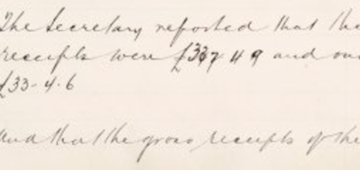 The Secretary reported that the
receipts were £337 4 9 and our
£33-4.6
and that the gross receipts of the